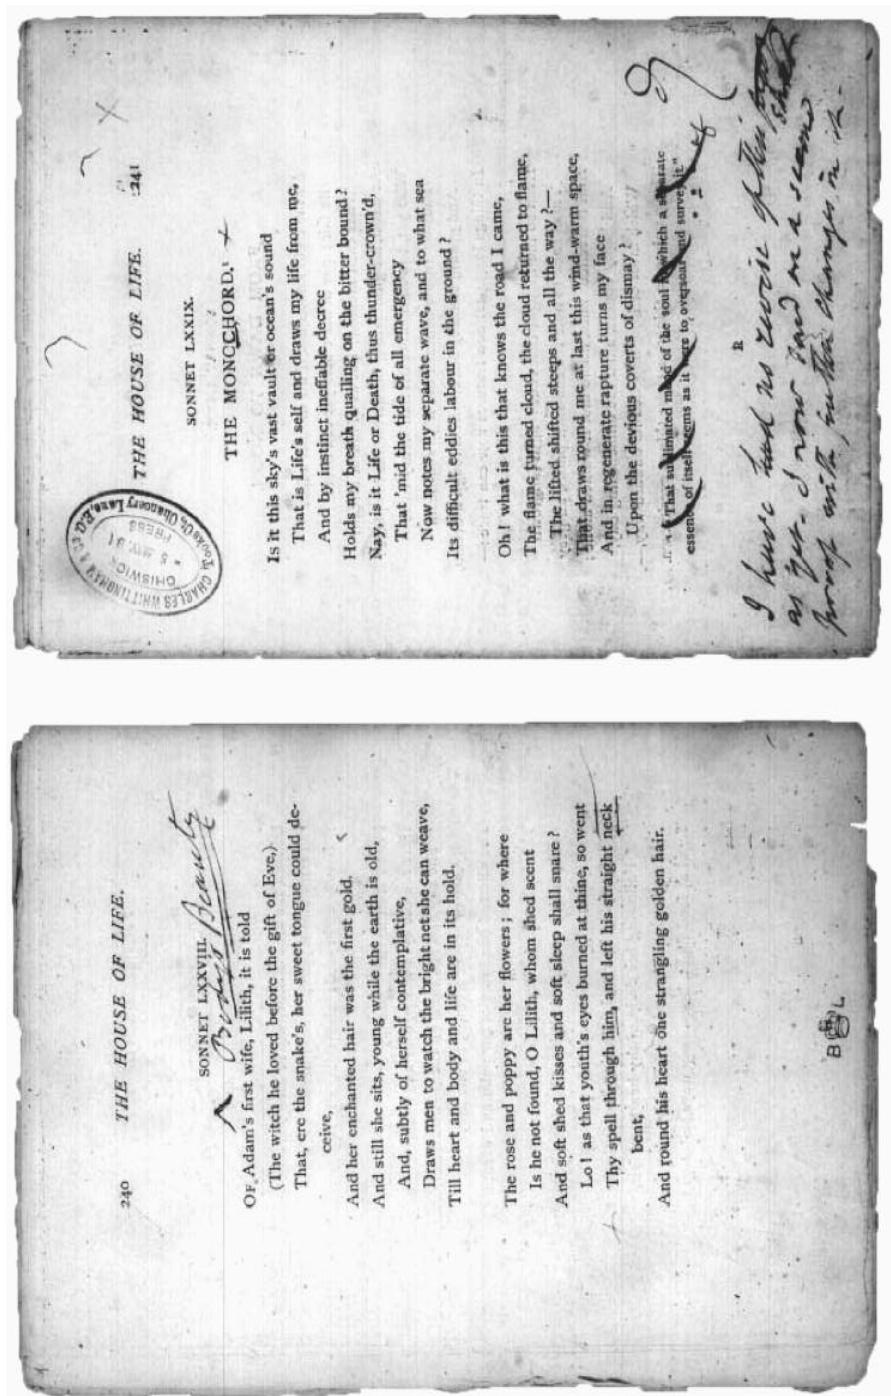 240 THE HOUSE OF LIFE.
SONNET LXXVIII.
Body's Beauty
OF Adam's first wife, Lilith, it is told
(The witch he loved before the gift of Eve,)
That, ere the snake's, her sweet tongue could de-
ceive,
And her enchanted hair was the first gold.
And still she sits, young while the earth is old,
And, subtly of herself contemplative,
Draws men to watch the bright net she can weave,
Till heart and body and life are in its hold.
The rose and poppy are her flowers ; for where
Is he not found, O Lilith, whom shed scent
And soft shed kisses and soft sleep shall snare ?
Lo ! as that youth's eyes burned at thine, so went
Thy spell through him, and left his straight neck
bent,
And round his heart one strangling golden hair.
B L
THE HOUSE OF LIFE. 241
CHARLES WHITTINGHAM & CO.
Tooks Ct. Chancery Lane,
CHISWICK
PRESS
SONNET LXXIX.
THE MONOCHORD.¹
Is it this sky's vast vault or ocean's sound
That is Life's self and draws my life from me,
And by instinct ineffable decree
Holds my breath quailing on the bitter bound ?
Nay, is it Life or Death, thus thunder-crown'd,
That 'mid the tide of all emergency
Now notes my separate wave, and to what sea
Its difficult eddies labour in the ground ?
Oh ! what is this that knows the road I came,
The flame turned cloud, the cloud returned to flame,
The lifted shifted steeps and all the way ?—
That draws round me at last this wind-warm space,
And in regenerate rapture turns my face
Upon the devious coverts of dismay ?
"That sublimated mood of the soul in which a separate
essence of itself seems as it were to oversoar and survey it."
R
I have had no revise of this
as yet. I now send in a second
proof with further changes in it.